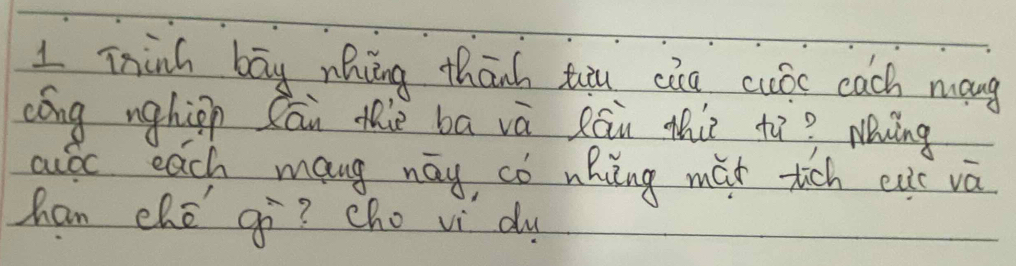 1 Trình bày những thành tựu của cuộc cách mạng
công nghiệp lần thứ ba và lần thứ tư? Những
cuộc cách mạng này, có những mặt tích cực và
hạn chế gì? Cho ví dụ